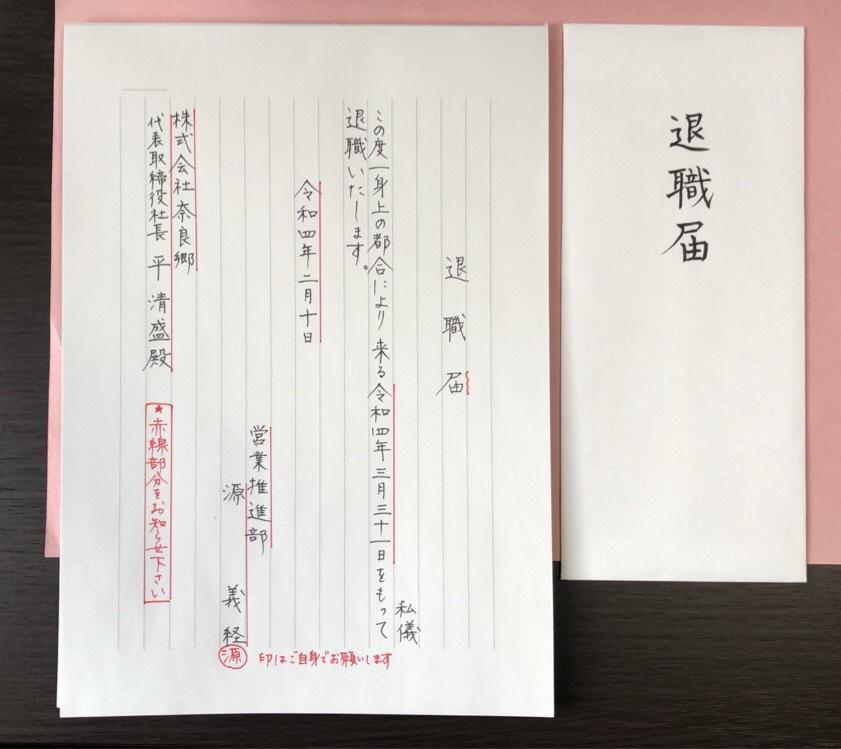 退職届
私儀
この度一身上の都合により来る令和四年三月三十一日をもって
退職いたします。
令和四年二月十日
営業推進部
源 義経
源
印はご自身でお願いします
株式会社奈良郷
代表取締役社長 平 清盛殿
★赤線部分をお知らせ下さい
退職届